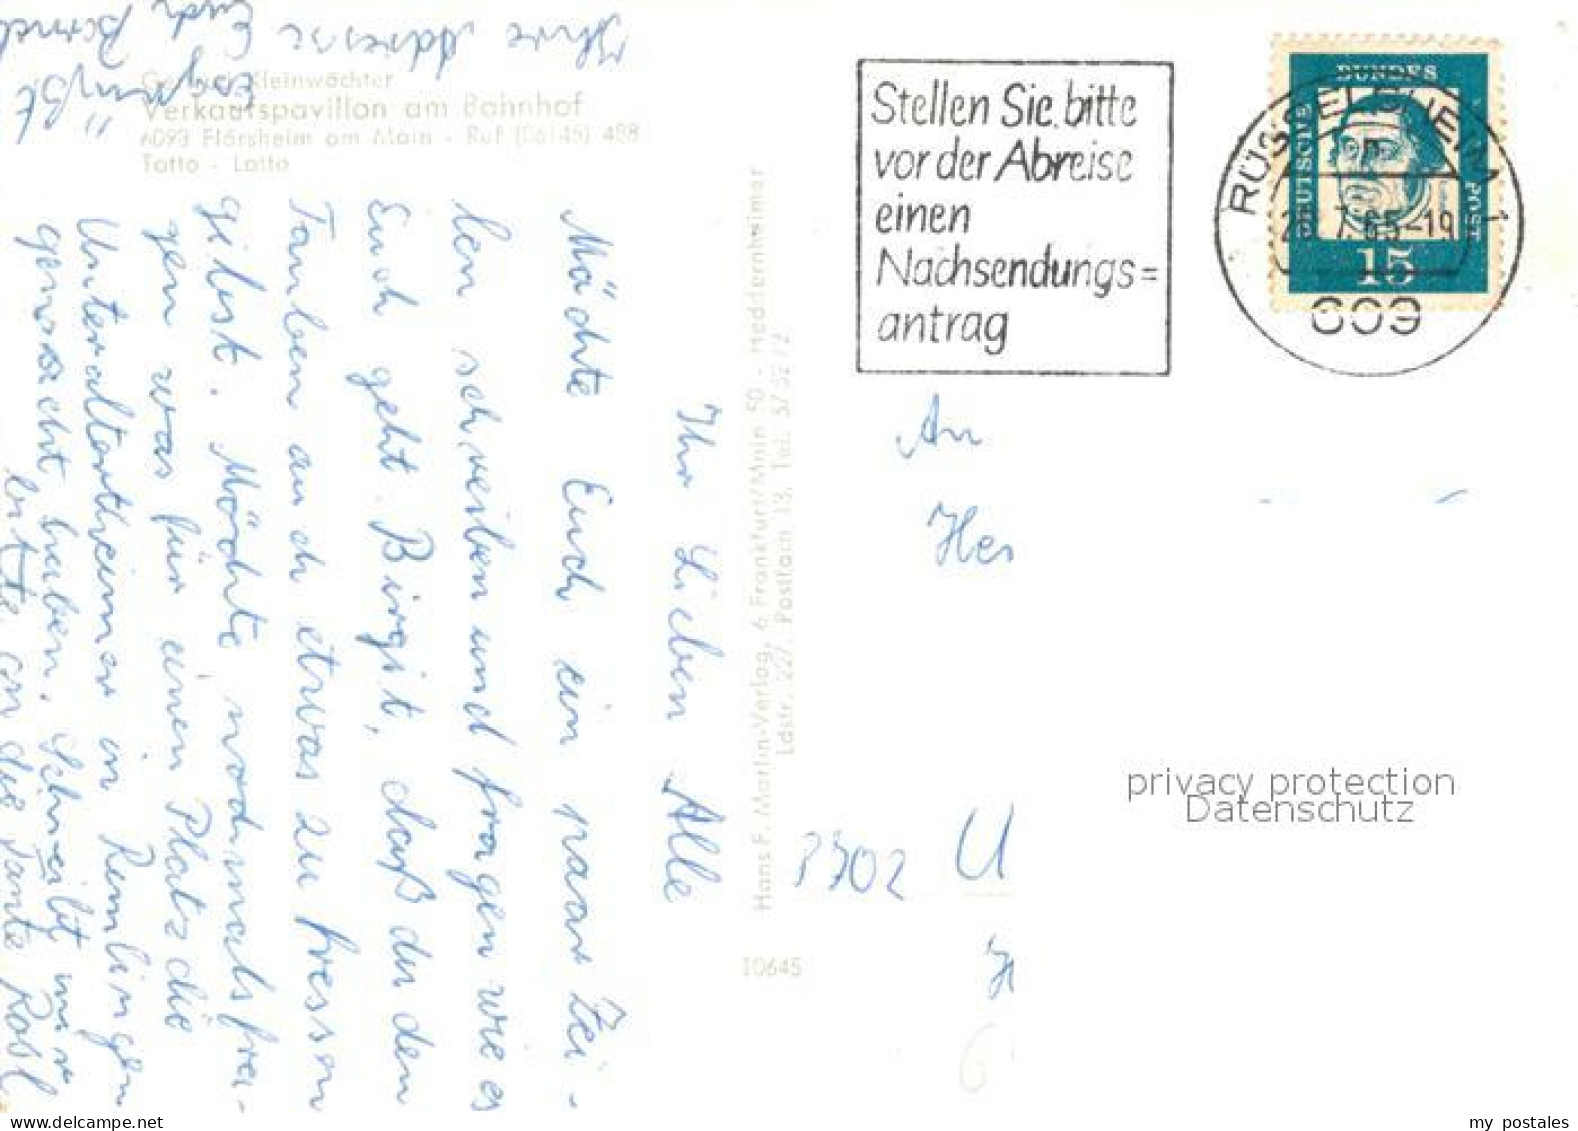 Gerhard Kleinwächter
Verkaufspavillon am Bahnhof
6093 Flörsheim am Main - Ruf (06145) 488
Totto - Lotto
Ihr Lieben Alle
Möchte Euch ein paar Zei-
len schreiben und fragen wie es
Euch geht. Birgit, daß du den
Tauben auch etwas zu fressen
gibst. Möchte nochmals fra-
gen was für einen Platz die
Unteraltertheimer in Remlingen
gemacht haben. Schreibt mir
bitte an die Tante Rosl
Ihre Adresse
Es grüßt
Euch
Hans F. Martin-Verlag, 6 Frankfurt/Main 50 - Heddernheimer
Ldstr. 227, Postfach 13, Tel. 57 52 72
10645
Stellen Sie bitte
vor der Abreise
einen
Nachsendungs=
antrag
RÜSSELSHEIM 1
7.65-19
609
DEUTSCHE
BUNDES
POST
15
An
8702 U
privacy protection
Datenschutz
my postales